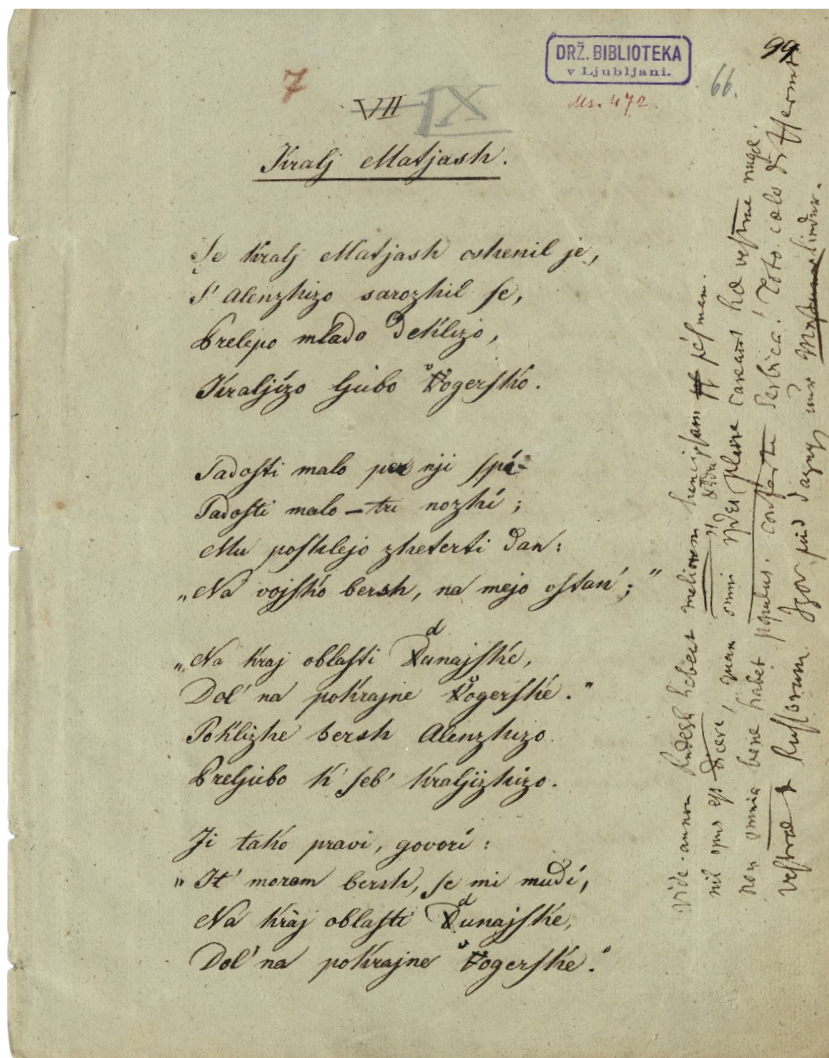 DRŽ. BIBLIOTEKA
v Ljubljani.
Ms. 472.
99
66.
7
VII
XI
Kralj Matjash.
Se kralj Matjash oshenil je,
S' Alenzhizo sarozhil se,
Prelepo mlado deklizo,
Kraljízo ljubo Vogersko.
Tadosti malo per nji spi
Tadosti malo – tri nozhí;
Mu poshlejo zheterti dan:
„Na vojsko bersh, na mejo vstan';"
„Na kraj oblasti dunajske,
Dol' na pokrajne Vogerske."
Poklizhe bersh Alenzhizo
Preljubo k' seb' kraljizhizo.
Ji tako pravi, govorí:
„It' morem bersh, se mi mudí,
Na kràj oblasti dunajske,
Dol' na pokrajne Vogerske."
vide annon Rudesh habeat meliorem
nil opus est dicere, quam omni careant hae vestrae nugae.
non omnia bene habet populus. Serbica! Toto coelo
vestrae & Russorum Igor